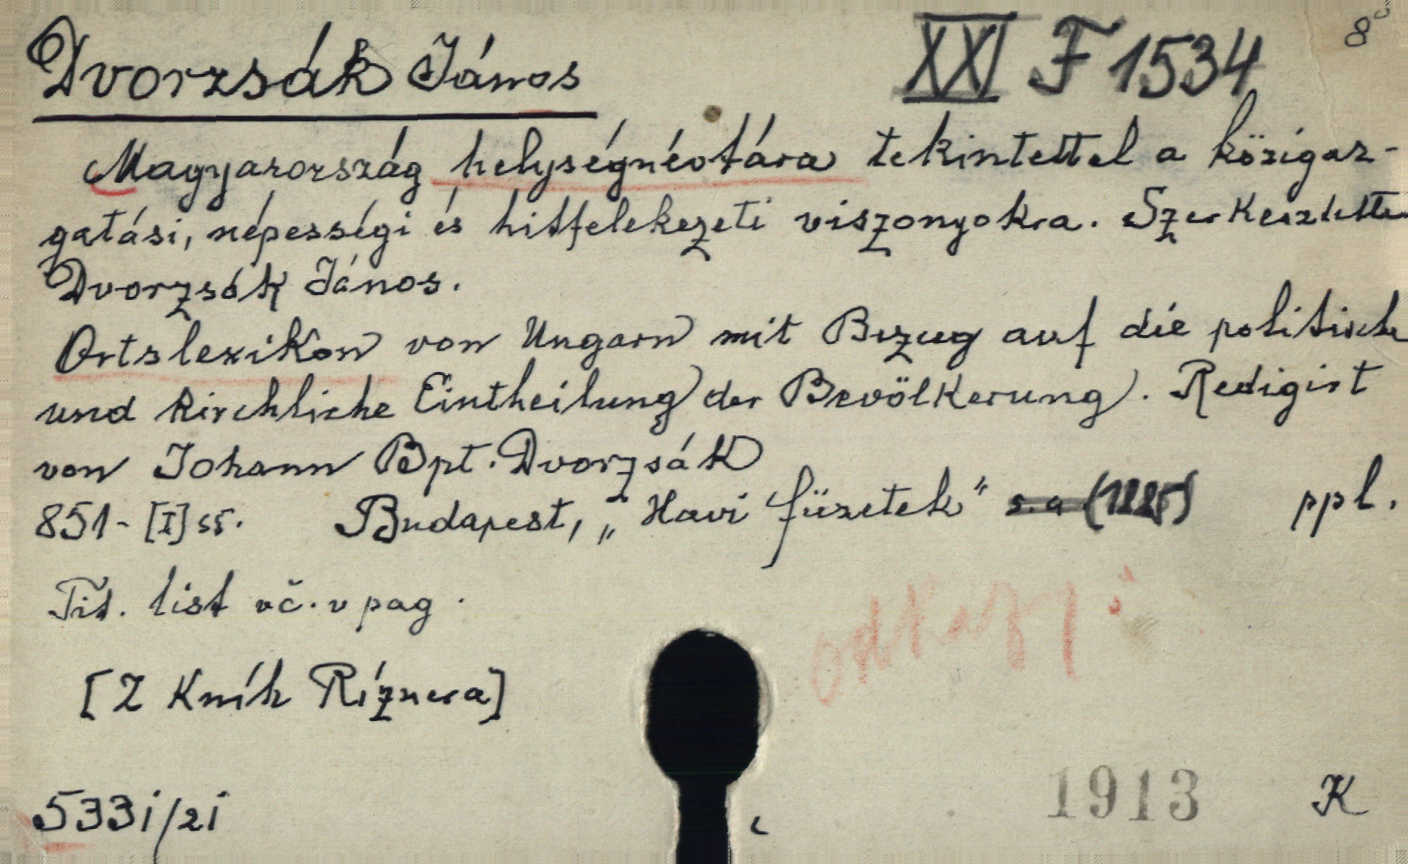 Dvorzsák János XXI F 1534 8°
Magyarország helységnévtára tekintettel a közigaz-
gatási, népességi és hitfelekezeti viszonyokra. Szerkesztette
Dvorzsák János.
Ortslexikon von Ungarn mit Bezug auf die politische
und kirchliche Eintheilung der Bevölkerung. Redigirt
von Johann Bpt. Dvorzsák
851-[I] ss. Budapest, „Havi füzetek" s.a (1885) ppl.
Tit. list vč. v pag.
odkazy:
[Z Kníh Ríznera]
533i/2i 1913 K